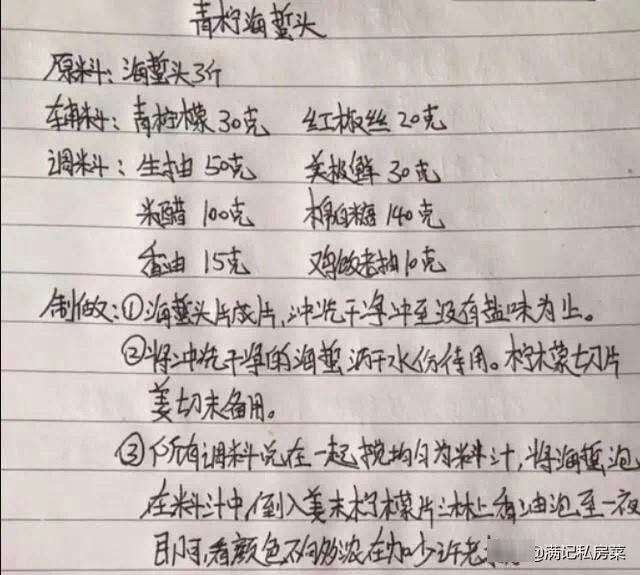 青柠海蜇头
原料:海蜇头3斤
辅料:青柠檬30克 红椒丝20克
调料:生抽50克 美极鲜30克
米醋100克 棉白糖140克
香油15克 鸡饭老抽10克
制做:①海蜇头片成片,冲洗干净冲至没有盐味为止。
②将冲洗干净的海蜇沥干水份待用。柠檬切片
姜切末备用。
③所有调料兑在一起搅均匀为料汁,将海蜇泡
在料汁中,倒入姜末柠檬片淋上香油泡至一夜
即可,看颜色不够浓在加少许老
@满记私房菜